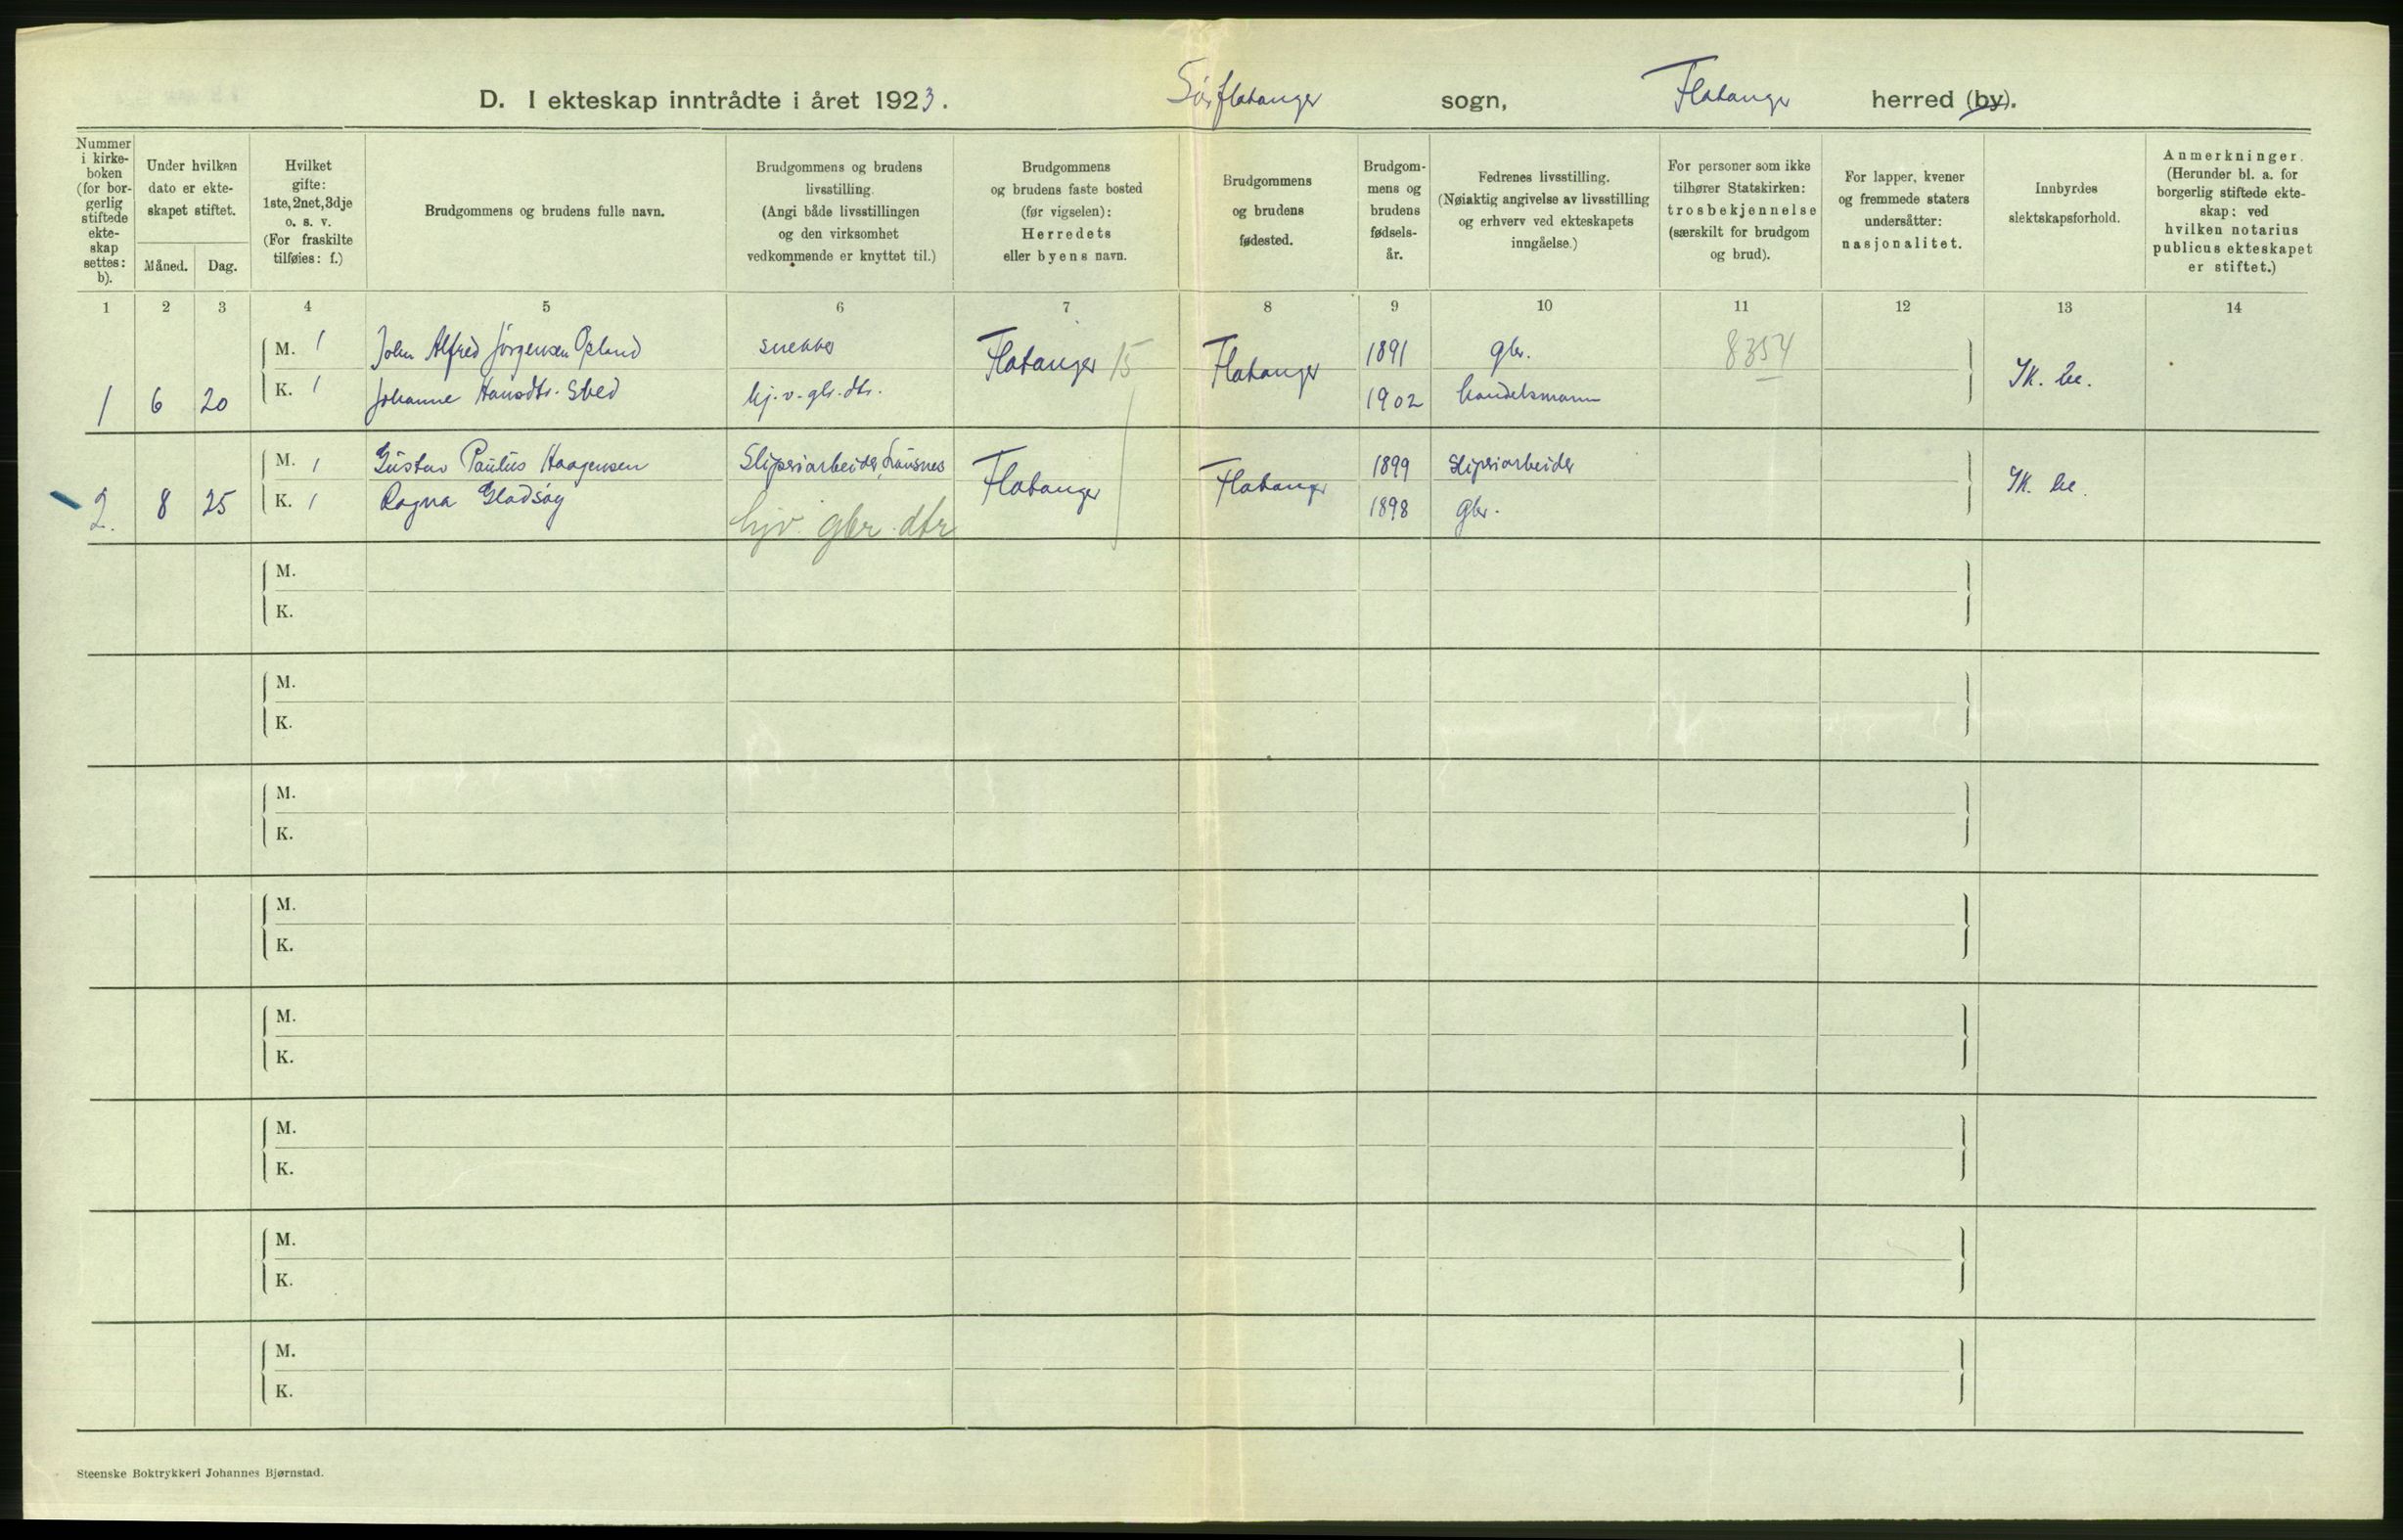 D. I ekteskap inntrådte i året 1923.
Sørflatanger sogn,
Flatanger herred (by).
Nummer
i kirke-
boken
(for bor-
gerlig
stiftede
ekte-
skap
settes:
b).
Under hvilken
dato er ekte-
skapet stiftet.
Måned. Dag.
Hvilket
gifte:
1ste, 2net, 3dje
o. s. v.
(For fraskilte
tilføies: f.)
Brudgommens og brudens fulle navn.
Brudgommens og brudens
livsstilling.
(Angi både livsstillingen
og den virksomhet
vedkommende er knyttet til.)
Brudgommens
og brudens faste bosted
(før vigselen):
Herredets
eller byens navn.
Brudgommens
og brudens
fødested.
Brudgom-
mens og
brudens
fødsels-
år.
Fedrenes livsstilling.
(Nøiaktig angivelse av livsstilling
og erhverv ved ekteskapets
inngåelse.)
For personer som ikke
tilhører Statskirken:
trosbekjennelse
(særskilt for brudgom
og brud).
For lapper, kvener
og fremmede staters
undersåtter:
nasjonalitet.
Innbyrdes
slektskapsforhold.
Anmerkninger.
(Herunder bl. a. for
borgerlig stiftede ekte-
skap: ved
hvilken notarius
publicus ekteskapet
er stiftet.)
1 2 3 4 5 6 7 8 9 10 11 12 13 14
M. 1 John Alfred Jørgensen Opland snekker 1891 gbr. 8354
1 6 20 Flatanger 15 Flatanger
K. 1 Johanne Hansdtr. Sved hj. v. gbr. dtr. 1902 handelsmann
M. 1 Gustav Paulus Haagensen Sliperiarbeider, Lausnes 1899 Sliperiarbeider
2. 8 25 Flatanger Flatanger
K. 1 Ragna Gladsøy 1898 gbr.
hjv. gbr. dtr
M.
K.
M.
K.
M.
K.
M.
K.
M.
K.
M.
K.
M.
K.
M.
K.
Steenske Boktrykkeri Johannes Bjørnstad.